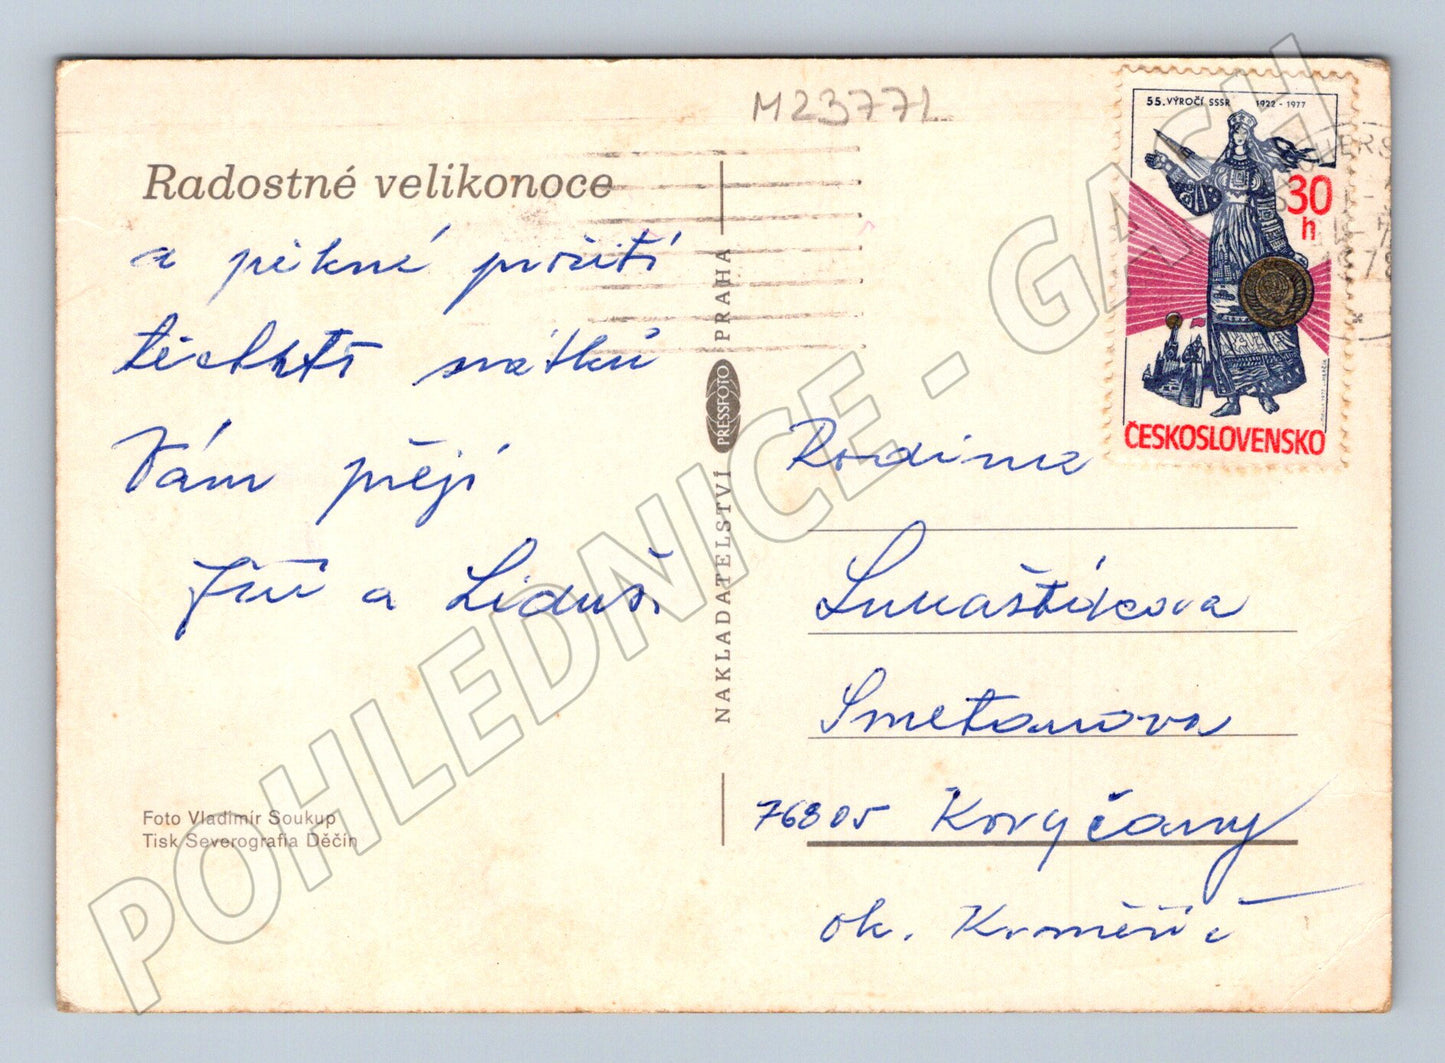 M23771
Radostné velikonoce
a pěkné prožití
těchto svátků
Vám přejí
Jiří a Liduš.
Foto Vladimír Soukup
Tisk Severografia Děčín
NAKLADATELSTVÍ PRESSFOTO PRAHA
55. VÝROČÍ SSSR 1922 - 1977
30
h
ČESKOSLOVENSKO
Rodina
Lukaštíkova
Smetanova
76805 Koryčany
ok. Kroměříž
POHLEDNICE - GACH